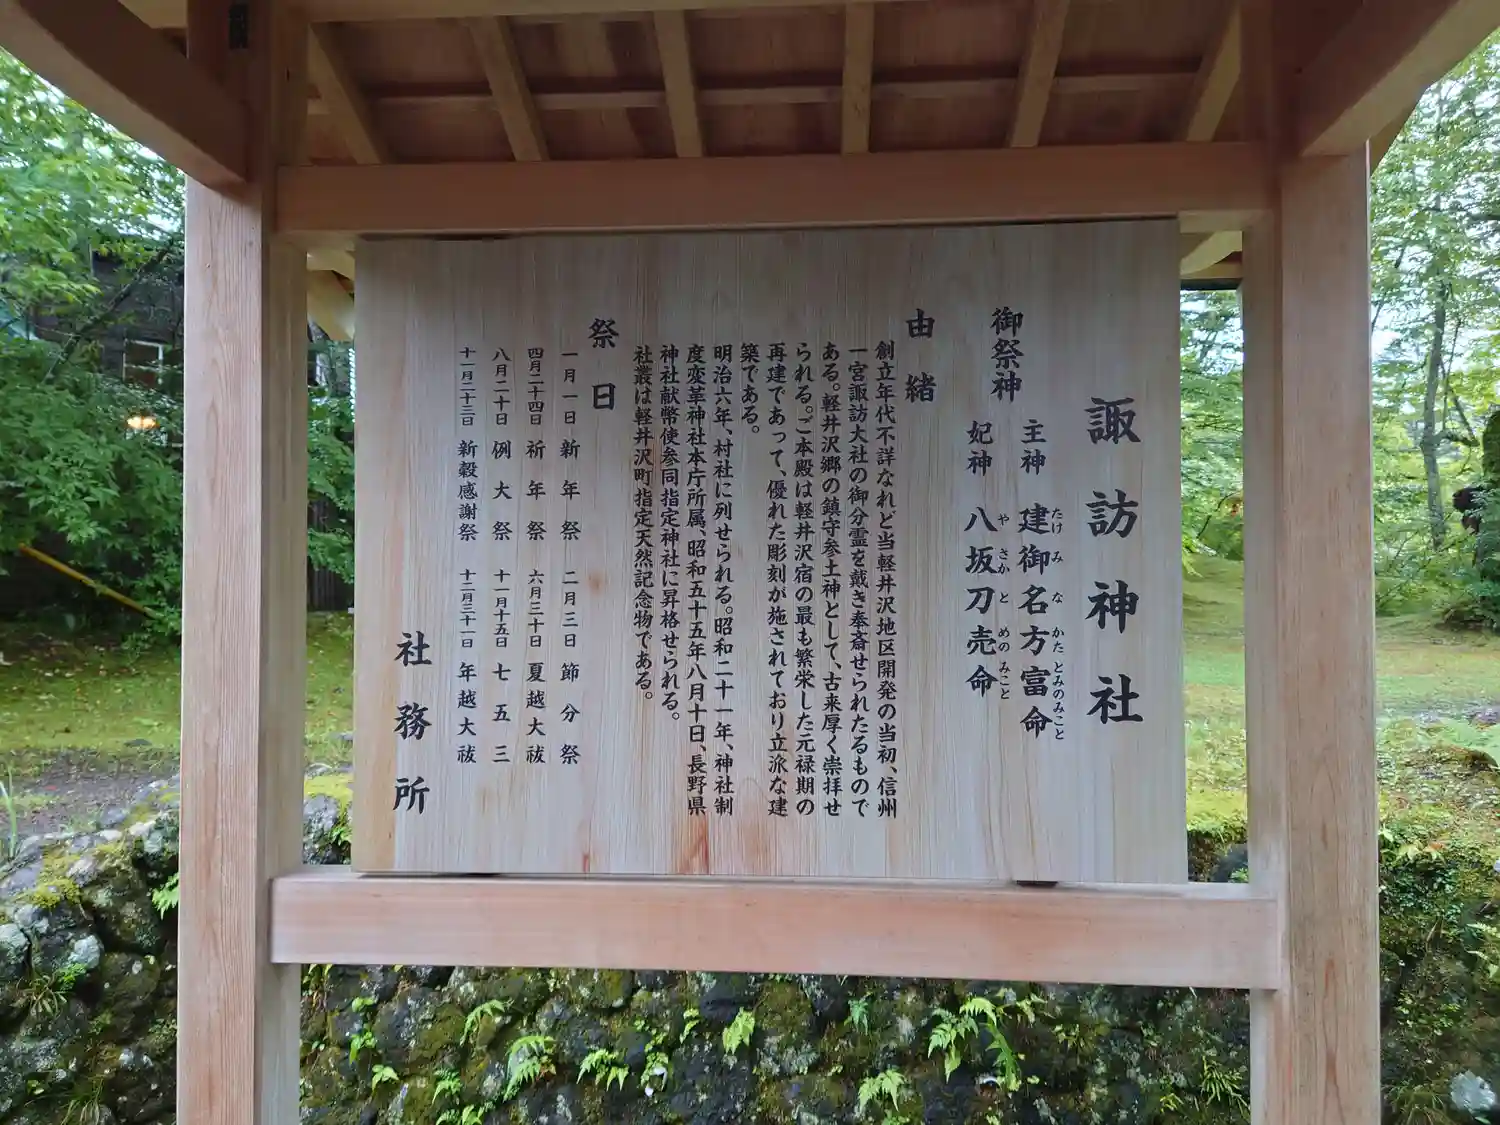 諏訪神社
御祭神
主神 建御名方富命
たけ み な かた とみのみこと
妃神 八坂刀売命
や さか と めの みこと
由緒
創立年代不詳なれど当軽井沢地区開発の当初、信州
一宮諏訪大社の御分霊を戴き奉斎せられたるもので
ある。軽井沢郷の鎮守参土神として、古来厚く崇拝せ
られる。ご本殿は軽井沢宿の最も繁栄した元禄期の
再建であって、優れた彫刻が施されており立派な建
築である。
明治六年、村社に列せられる。昭和二十一年、神社制
度変革神社本庁所属、昭和五十五年八月十日、長野県
神社献幣使参同指定神社に昇格せられる。
社叢は軽井沢町指定天然記念物である。
祭日
一月一日 新年祭 二月三日 節分祭
四月二十四日 祈年祭 六月三十日 夏越大祓
八月二十日 例大祭 十一月十五日 七五三
十一月二十三日 新穀感謝祭 十二月三十一日 年越大祓
社務所